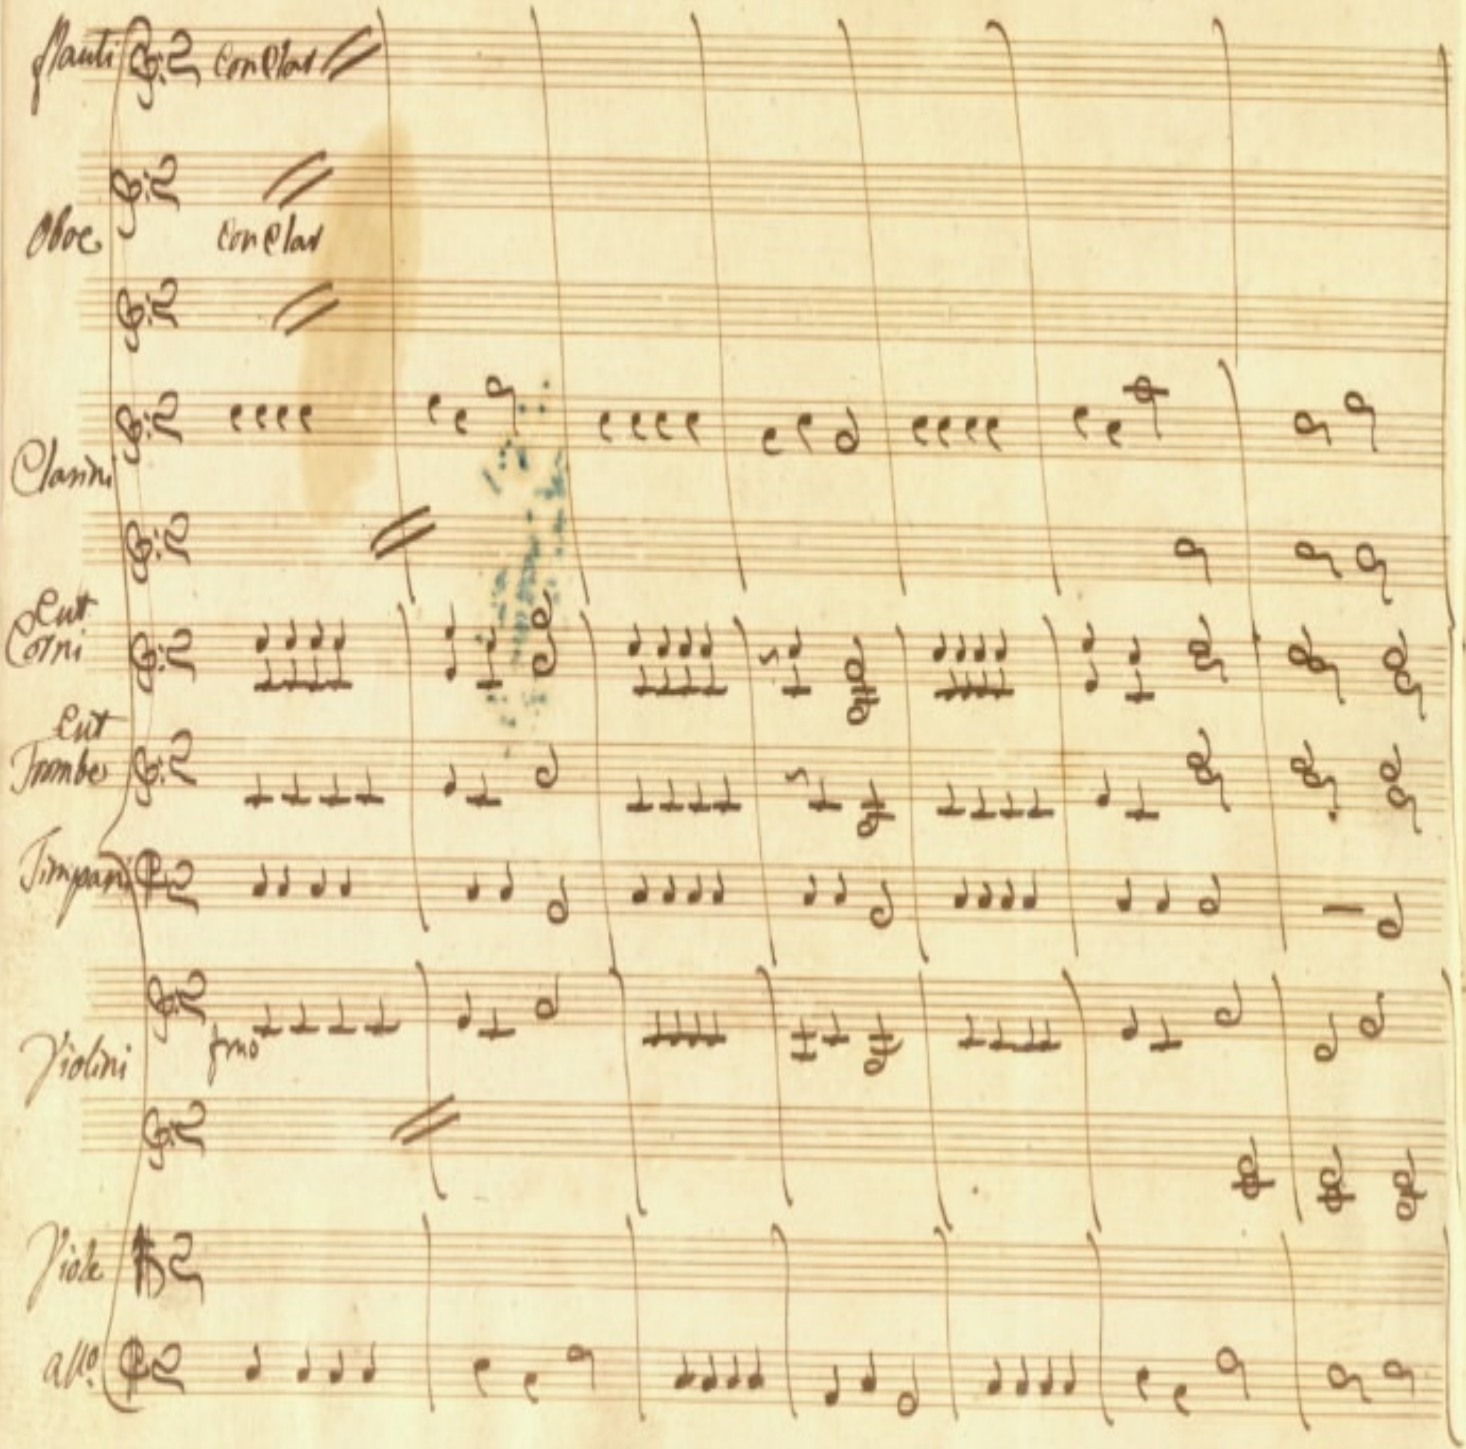 flauti Con Clar
Oboe Con Clar
Clarini
Cut
Corni
Cut
Trombe
Timpani
Violini fmo
Viole
allo.